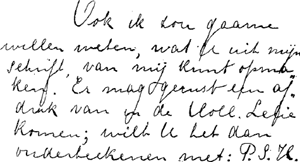 Ook ik zou gaarne
willen weten, wat U uit mijn
schrift, van mij kunt opma-
ken. Er mag gerust een af-
druk van in de Holl. Lelie
komen; wilt U het dan
onderteekenen met: P. S. H.